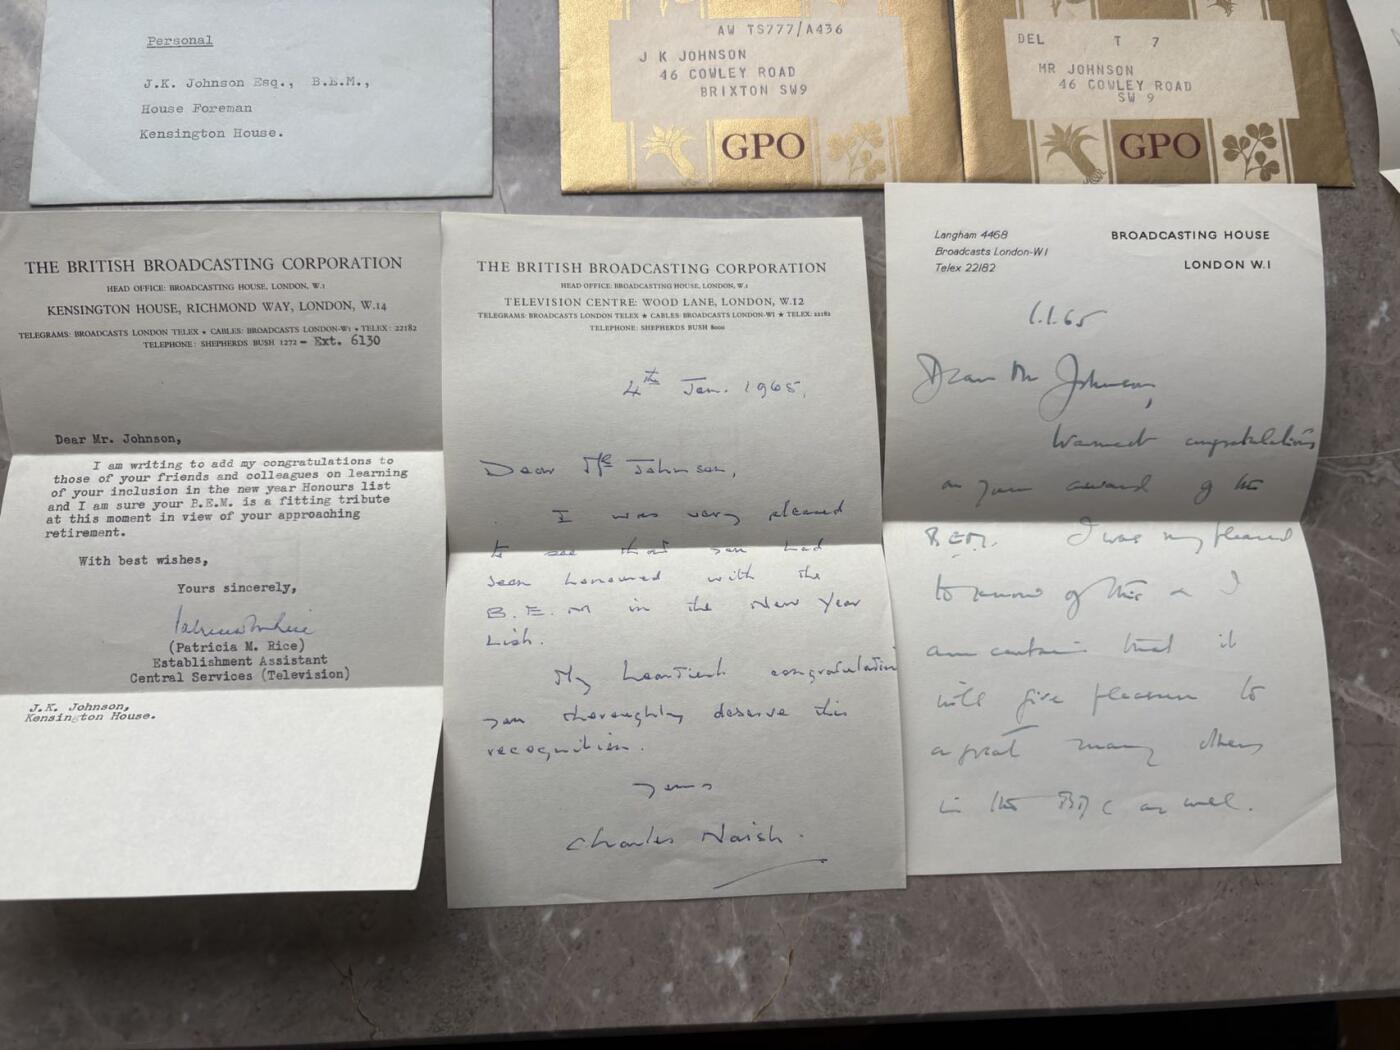 Personal
J.K. Johnson Esq., B.E.M.,
House Foreman
Kensington House.
AW TS777/A436
J K JOHNSON
46 COWLEY ROAD
BRIXTON SW9
GPO
DEL T 7
MR JOHNSON
46 COWLEY ROAD
SW 9
GPO
THE BRITISH BROADCASTING CORPORATION
HEAD OFFICE: BROADCASTING HOUSE, LONDON, W.1
KENSINGTON HOUSE, RICHMOND WAY, LONDON, W.14
TELEGRAMS: BROADCASTS LONDON TELEX ★ CABLES: BROADCASTS LONDON-W1 ★ TELEX: 22182
TELEPHONE: SHEPHERDS BUSH 1272 - Ext. 6130
Dear Mr. Johnson,
I am writing to add my congratulations to
those of your friends and colleagues on learning
of your inclusion in the new year Honours list
and I am sure your B.E.M. is a fitting tribute
at this moment in view of your approaching
retirement.
With best wishes,
Yours sincerely,
Patricia M Rice
(Patricia M. Rice)
Establishment Assistant
Central Services (Television)
J.K. Johnson,
Kensington House.
THE BRITISH BROADCASTING CORPORATION
HEAD OFFICE: BROADCASTING HOUSE, LONDON, W.1
TELEVISION CENTRE: WOOD LANE, LONDON, W.12
TELEGRAMS: BROADCASTS LONDON TELEX ★ CABLES: BROADCASTS LONDON-W1 ★ TELEX: 22182
TELEPHONE: SHEPHERDS BUSH 8000
4th Jan. 1965.
Dear Mr Johnson,
I was very pleased
to see that you had
been honoured with the
B.E.M in the New Year
List.
My heartiest congratulations
you thoroughly deserve this
recognition.
Yours
Charles Naish.
Langham 4468
Broadcasts London-W1
Telex 22182
BROADCASTING HOUSE
LONDON W.1
1.1.65
Dear Mr Johnson,
Warmest congratulations
on your award of the
B.E.M. I was very pleased
to know of this & I
am certain that it
will give pleasure to
a great many others
in the BBC as well.